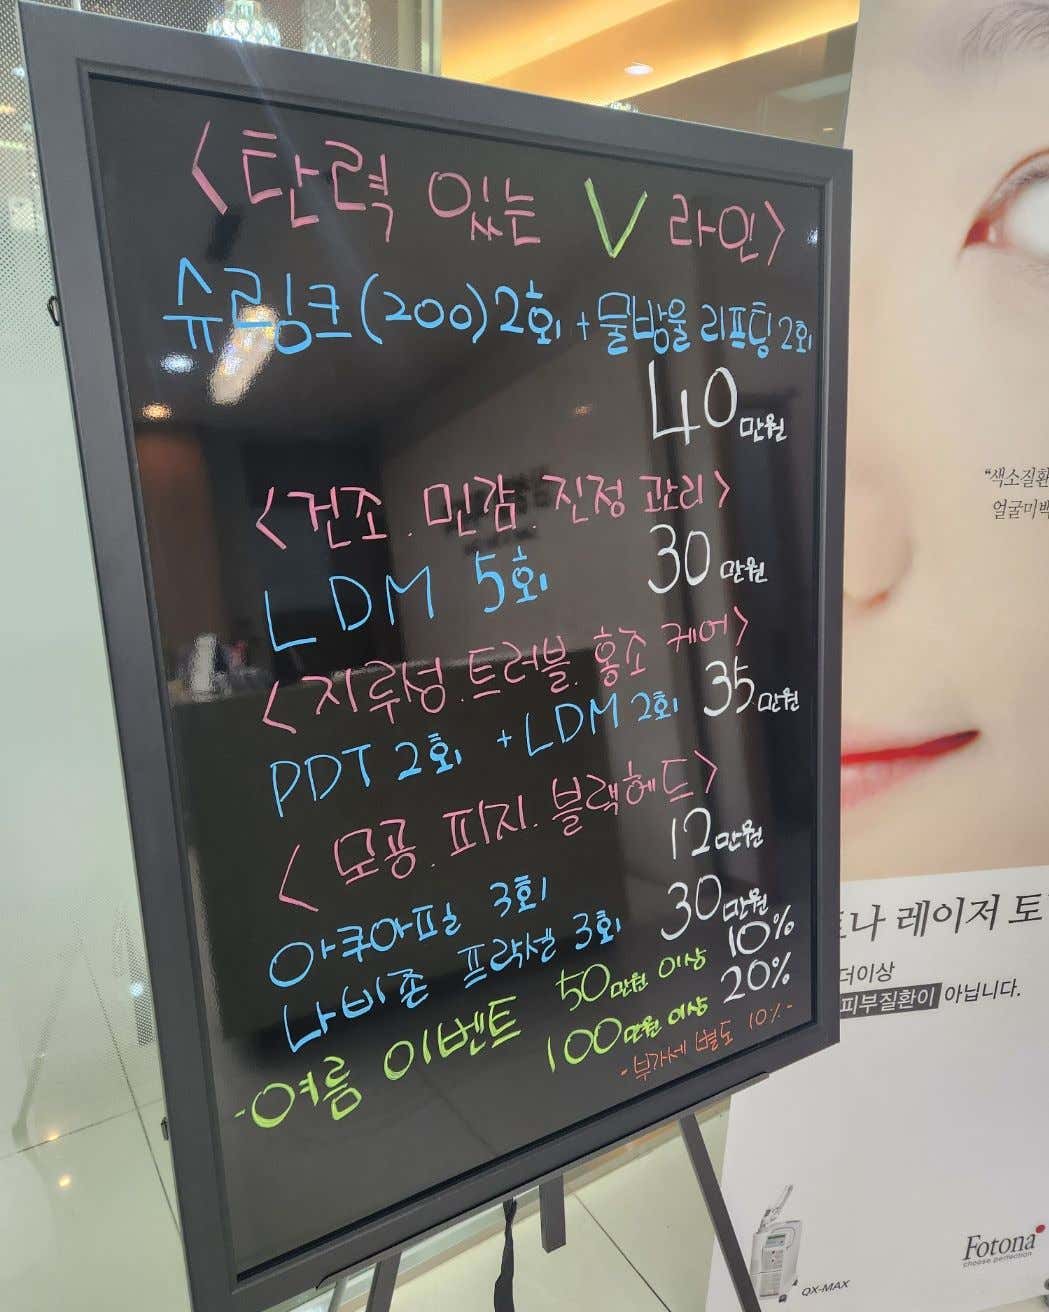 <탄력 있는 V 라인>
슈링크(200)2회 + 물방울 리프팅 2회
40만원
<건조. 민감. 진정 관리>
LDM 5회 30만원
<지루성. 트러블. 홍조 케어>
PDT 2회 + LDM 2회 35만원
<모공. 피지. 블랙헤드>
아쿠아필 3회 12만원
나비존 프락셀 3회 30만원
-여름 이벤트 50만원 이상 10%
100만원 이상 20%
-부가세 별도 10%-
"색소질환
얼굴미백
토나 레이저 토
더이상
피부질환이 아닙니다.
QX-MAX
Fotona
choose perfection